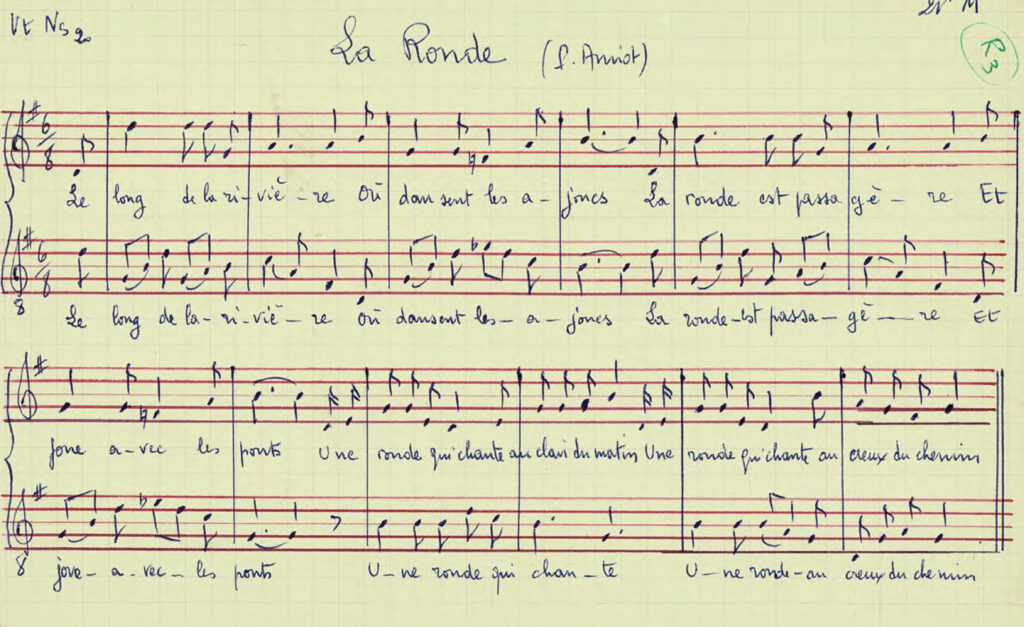 Vt Ns 2.
La Ronde (P. Amiot)
R3
6/8
Le long de la ri- viè - re Où dansent les a - joncs La ronde est passa gè - re Et
6/8
8 Le long de la- ri- viè - re Où dansent les- a - joncs La ronde-est passa- gè - re Et
joue a-vec les ponts Une ronde qui chante au clair du matin Une ronde qui chante au creux du chemin
8 joue- a - vec- les ponts U-ne ronde qui chan-te U-ne ronde-au creux du chemin